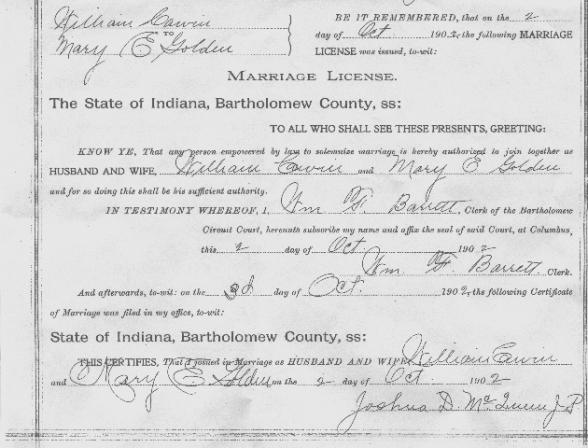 William Erwin
TO
Mary E Golden
BE IT REMEMBERED, that on the 2
day of Oct 1902, the following MARRIAGE
LICENSE was issued, to-wit:
MARRIAGE LICENSE.
The State of Indiana, Bartholomew County, ss:
TO ALL WHO SHALL SEE THESE PRESENTS, GREETING:
KNOW YE, That any person empowered by law to solemnize marriage is hereby authorized to join together as
HUSBAND AND WIFE, William Erwin and Mary E Golden
and for so doing this shall be his sufficient authority.
IN TESTIMONY WHEREOF, I, Wm F. Barrett, Clerk of the Bartholomew
Circuit Court, hereunto subscribe my name and affix the seal of said Court, at Columbus,
this 2 day of Oct 1902
Wm F. Barrett Clerk.
And afterwards, to-wit: on the 3d day of Oct. 1902, the following Certificate
of Marriage was filed in my office, to-wit:
State of Indiana, Bartholomew County, ss:
THIS CERTIFIES, That I joined in Marriage as HUSBAND AND WIFE William Erwin
and Mary E Golden on the 2 day of Oct. 1902
Joshua D. J P